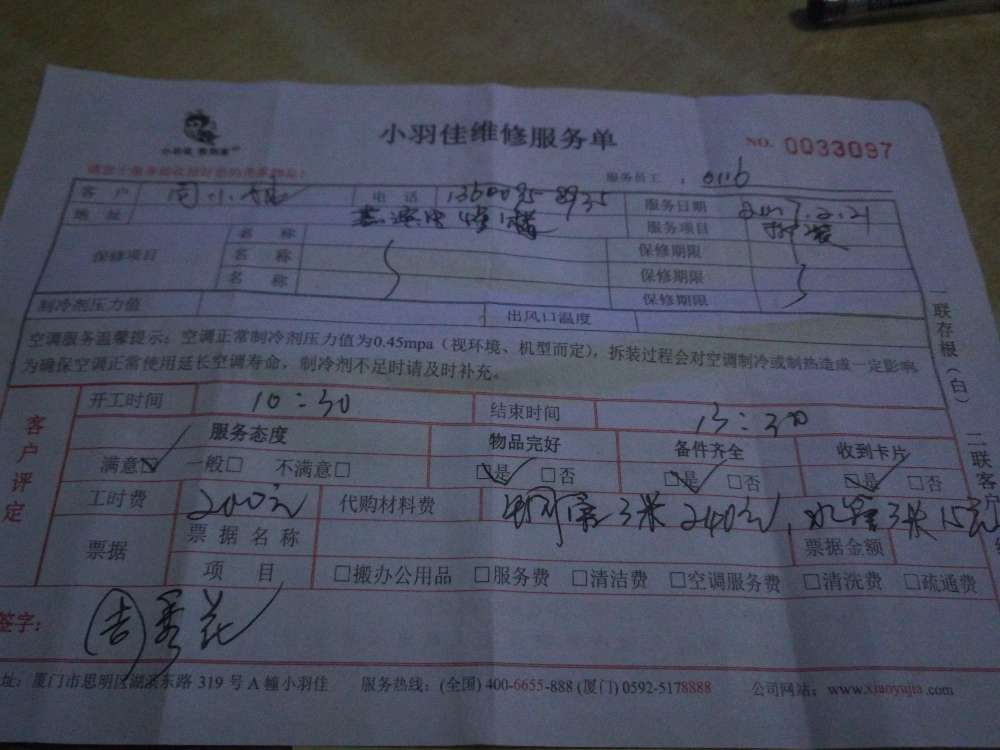 小羽佳维修服务单
NO. 0033097
服务员工：0116
客户 周小姐 电话 服务日期
地址 4幢1楼 服务项目 拆装
保修项目 名称 保修期限
名称 保修期限
名称 保修期限
制冷剂压力值 出风口温度
空调服务温馨提示：空调正常制冷剂压力值为0.45mpa（视环境、机型而定），拆装过程会对空调制冷或制热造成一定影响
为确保空调正常使用延长空调寿命，制冷剂不足时请及时补充。
客户评定
开工时间 10:30 结束时间 13:30
服务态度 物品完好 备件齐全 收到卡片
满意☑ 一般□ 不满意□ ☑是 □否 ☑是 □否 ☑是 □否
工时费 200元 代购材料费 铜管3米240元，水管3米15元
票据 票据名称 票据金额
项目 □搬办公用品 □服务费 □清洁费 □空调服务费 □清洗费 □疏通费
签字：
址：厦门市思明区湖滨东路 319 号 A 幢小羽佳 服务热线：(全国) 400-6655-888 (厦门) 0592-5178888 公司网站：www.xiaoyujia.com
一联存根（白）
二联客户